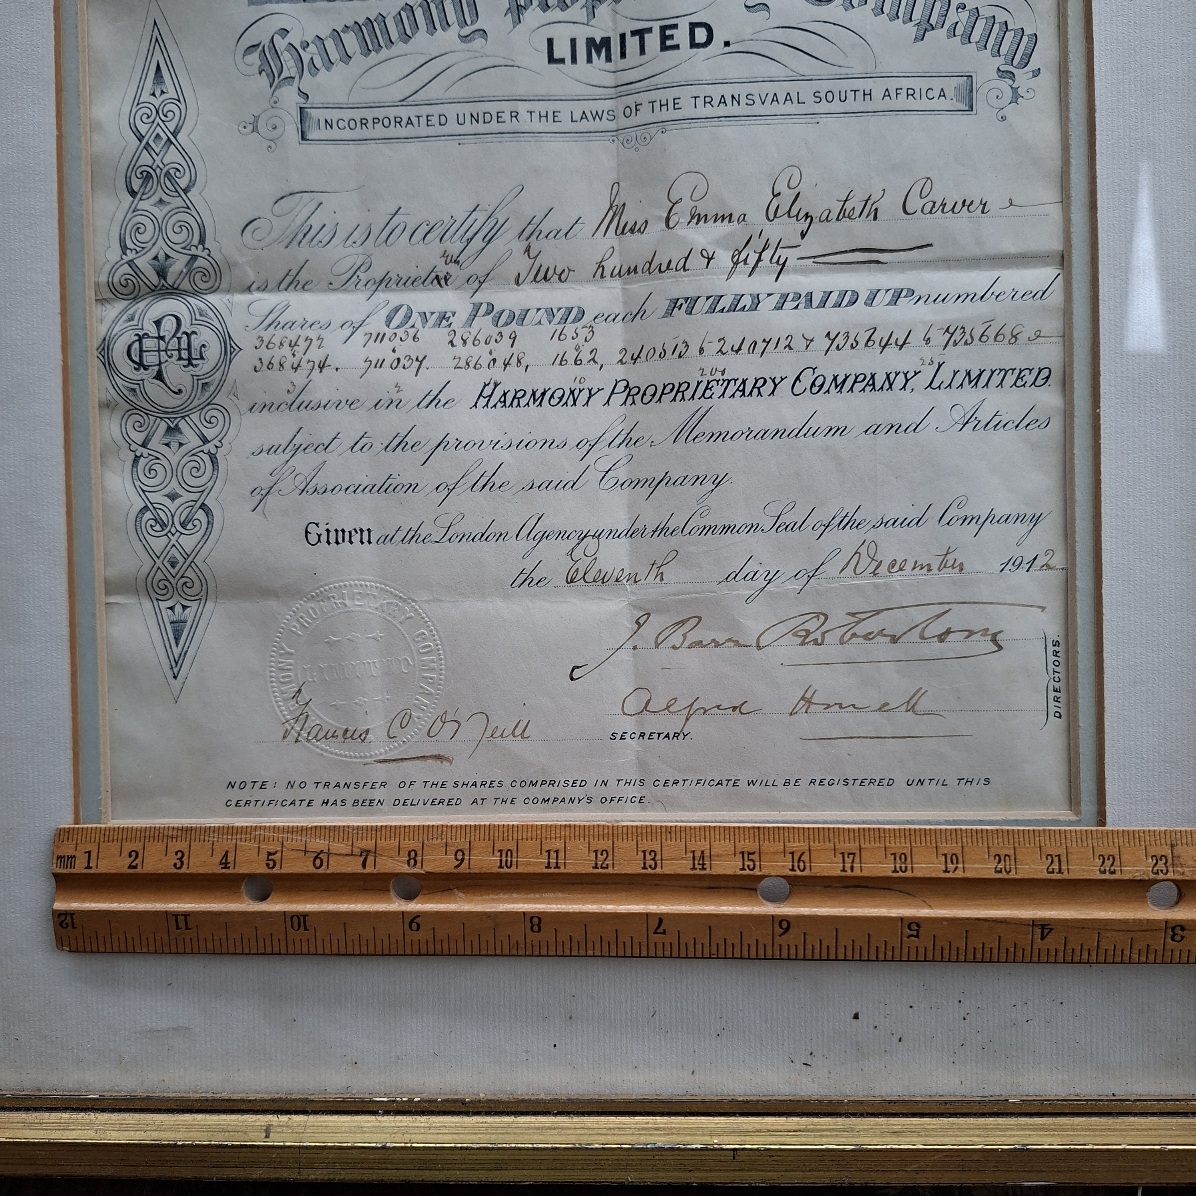 Harmony Proprietary Company,
LIMITED.
INCORPORATED UNDER THE LAWS OF THE TRANSVAAL SOUTH AFRICA.
This is to certify that Miss Emma Elizabeth Carver
is the Proprietor of Two hundred & fifty
Shares of ONE POUND each FULLY PAID UP numbered
368472 711036 286039 1653
368474. 711037. 286048, 1662, 240513 to 240712 & 735644 to 735668
3 2 10 10 200 25
inclusive in the HARMONY PROPRIETARY COMPANY, LIMITED.
subject to the provisions of the Memorandum and Articles
of Association of the said Company.
Given at the London Agency under the Common Seal of the said Company
the Eleventh day of December 1912.
HARMONY PROPRIETARY COMPANY
LIMITED
J. Barr Robertson
Alfred Howell
DIRECTORS.
Francis C. O'Neill
SECRETARY.
NOTE: NO TRANSFER OF THE SHARES COMPRISED IN THIS CERTIFICATE WILL BE REGISTERED UNTIL THIS
CERTIFICATE HAS BEEN DELIVERED AT THE COMPANY'S OFFICE.
mm 1 2 3 4 5 6 7 8 9 10 11 12 13 14 15 16 17 18 19 20 21 22 23
12 11 10 9 8 7 6 5 4 3